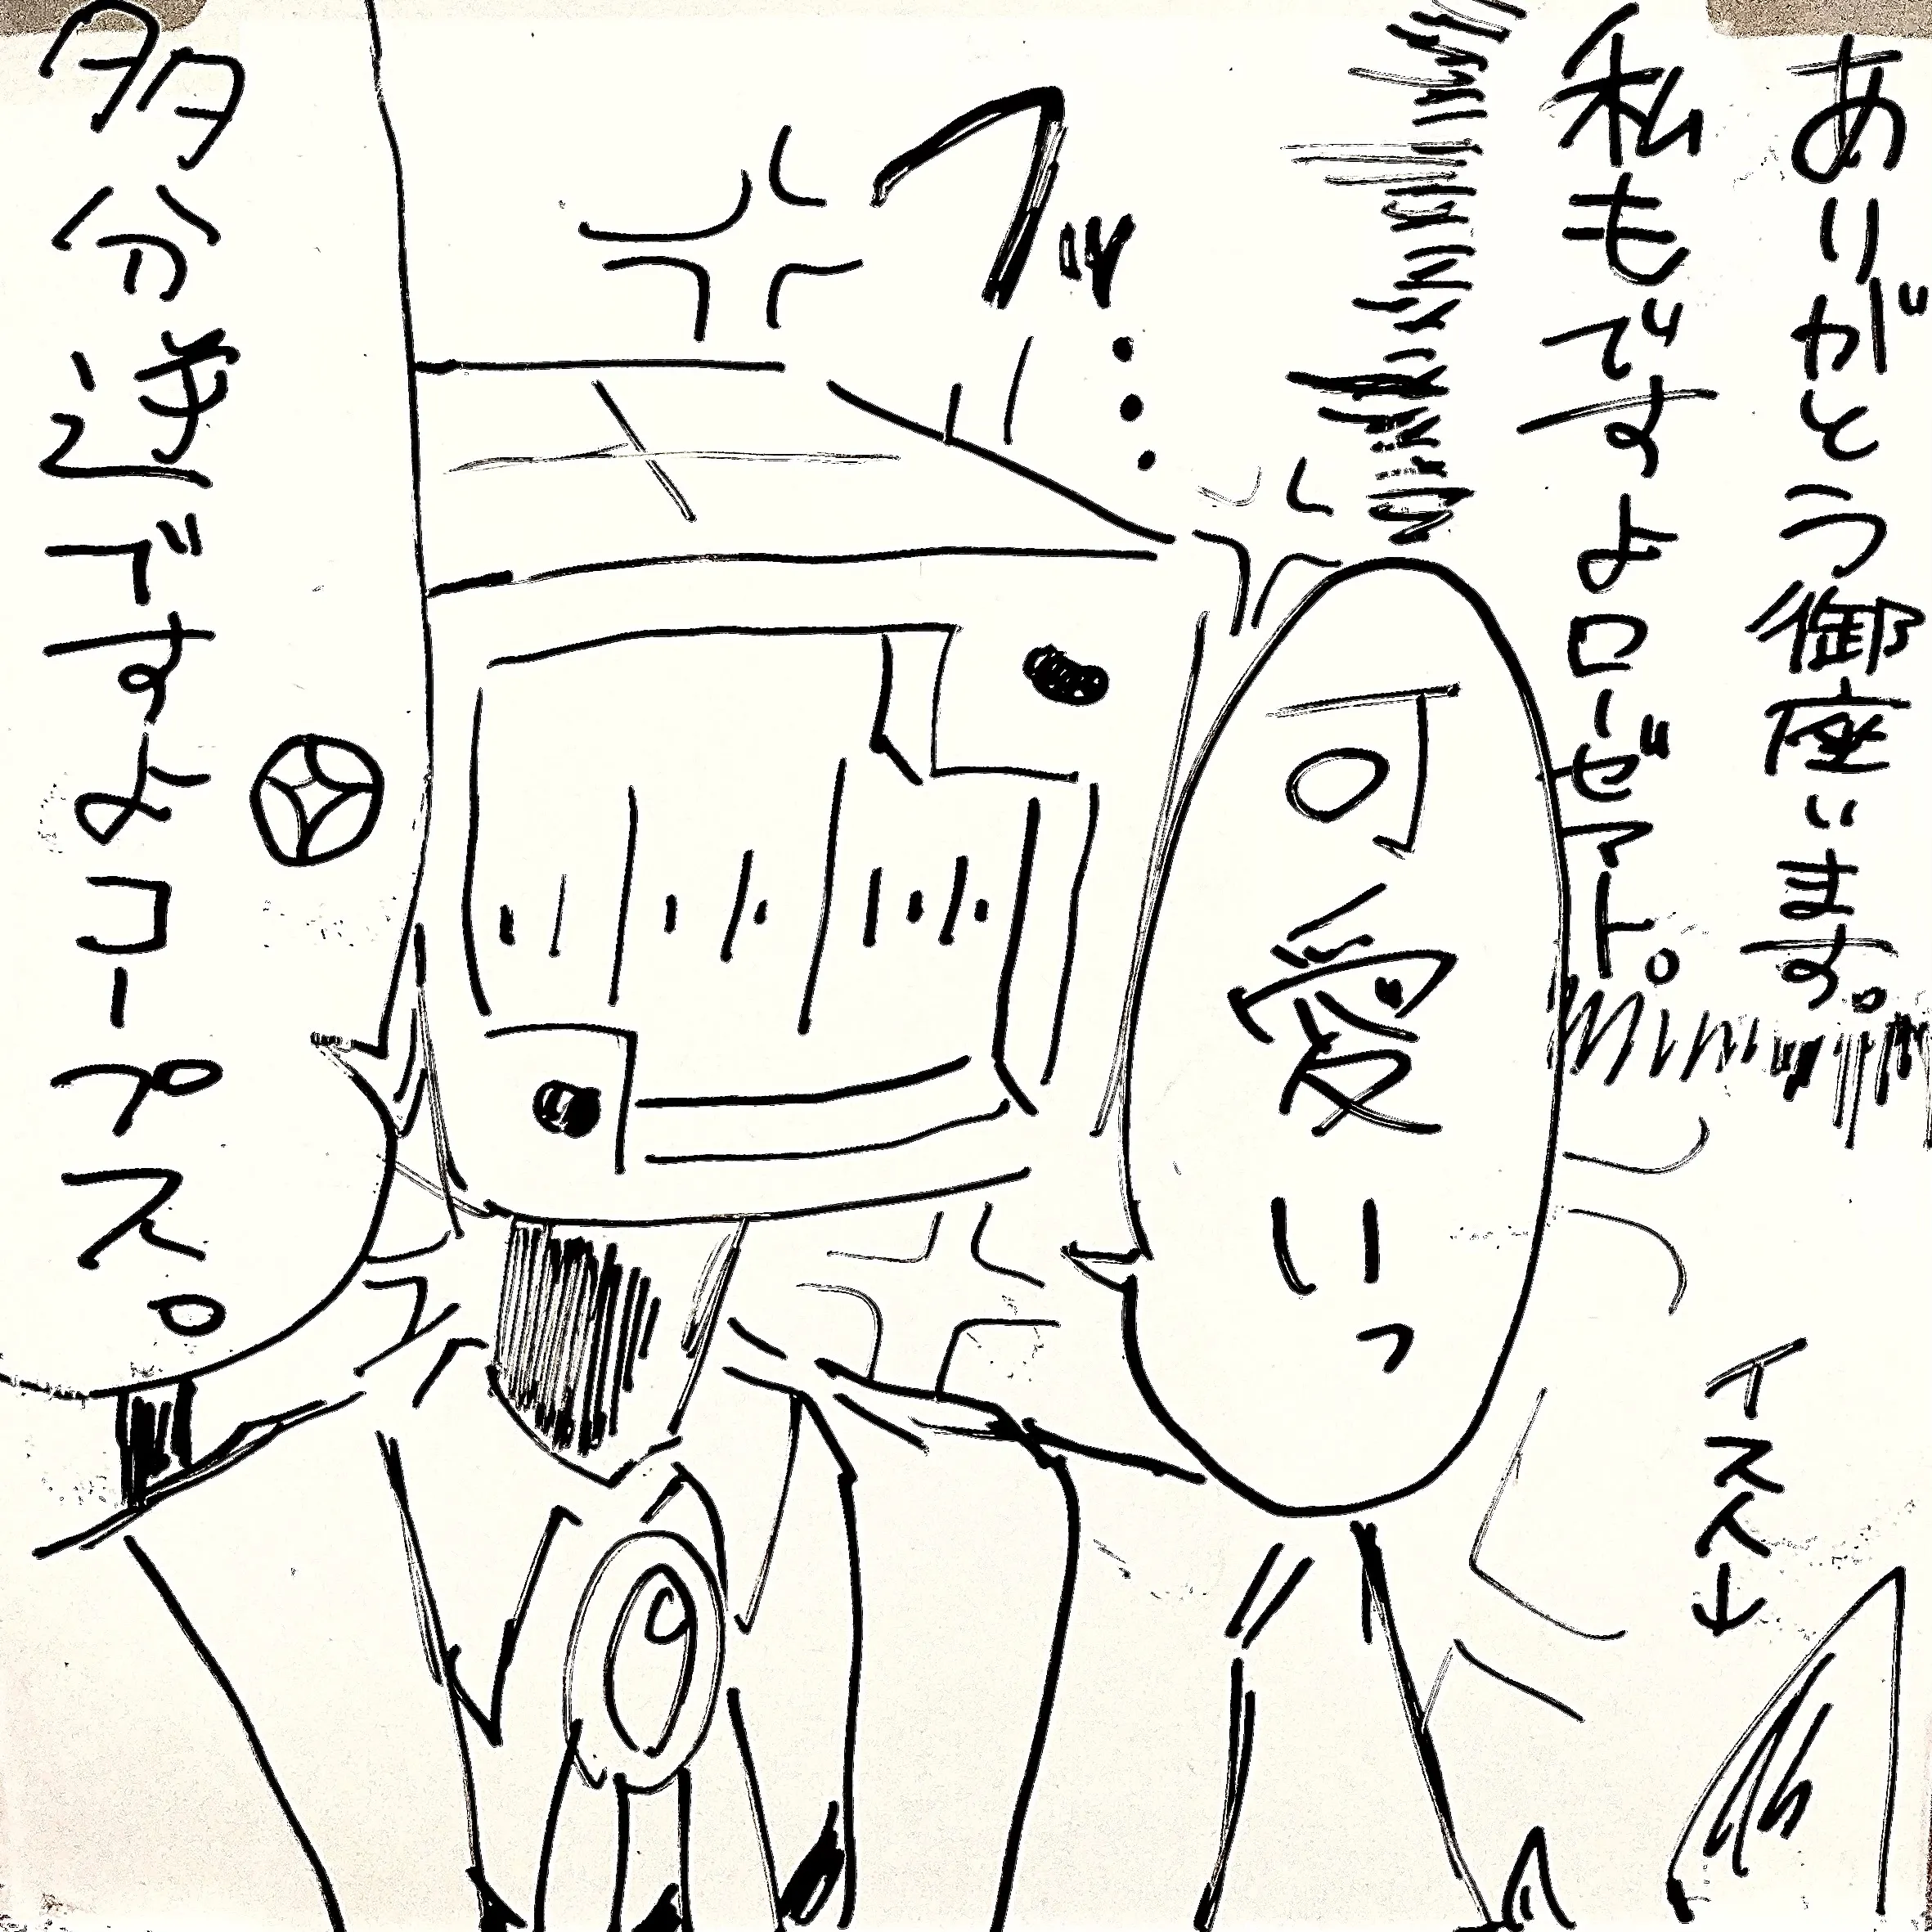 ありがとう御座います。
私もですよローゼマト。
フッ…
可愛いっ
イス人↓
多分逆ですよコープス。